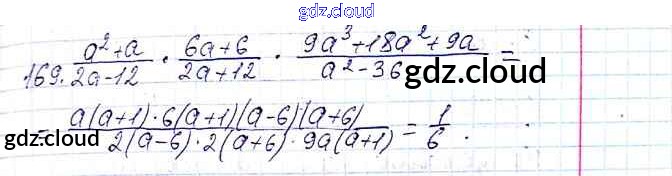 gdz.cloud
169. \frac{a^2+a}{2a-12} \cdot \frac{6a+6}{2a+12} : \frac{9a^3+18a^2+9a}{a^2-36} =
gdz.cloud
= \frac{a(a+1) \cdot 6(a+1)(a-6)(a+6)}{2(a-6) \cdot 2(a+6) \cdot 9a(a+1)} = \frac{1}{6}.
gdz.cloud